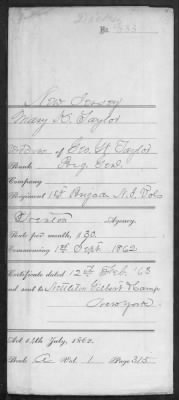 New Jersey
Mary H. Taylor
Widow of Geo. W. Taylor
Rank Brig Genl.
Company
Regiment 1st Brigade N.J. Vols
Trenton Agency.
Rate per month, $30.
Commencing 1st Sept 1862
Certificate dated 12th Feb. '63
and sent to Nettleton Gilbert & Camp
New York
Act 14th July, 1862.
Book A Vol. 1 Page 315